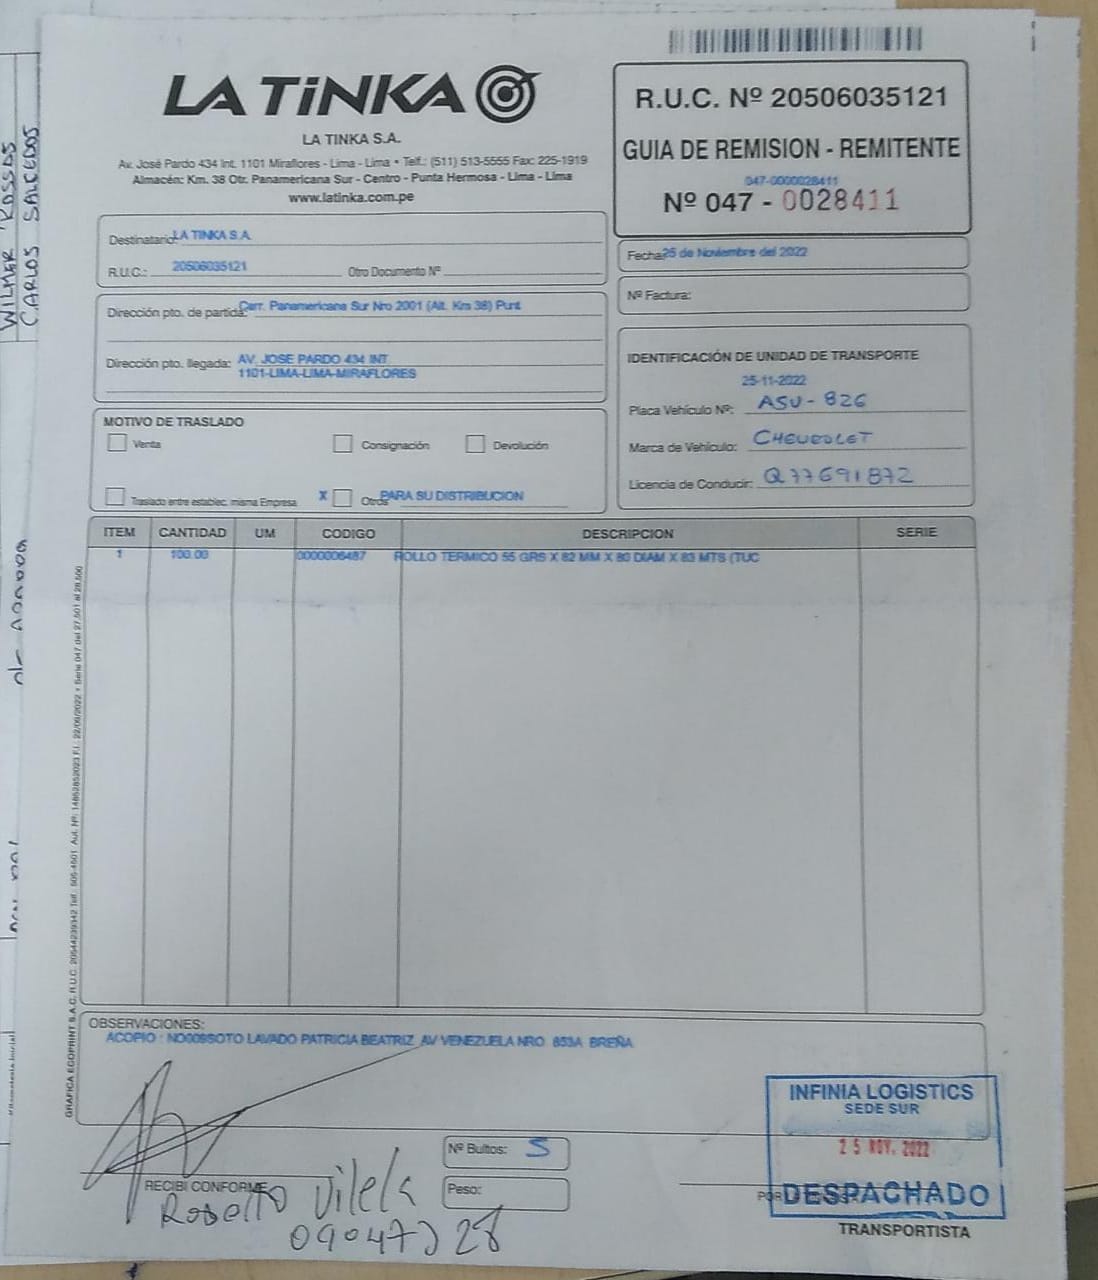 WILMAR ROSSAS
CARLOS SALCEDOS
LA TiNKA
LA TINKA S.A.
Av. José Pardo 434 Int. 1101 Miraflores - Lima - Lima • Telf.: (511) 513-5555 Fax: 225-1919
Almacén: Km. 38 Otr. Panamericana Sur - Centro - Punta Hermosa - Lima - Lima
www.latinka.com.pe
R.U.C. Nº 20506035121
GUIA DE REMISION - REMITENTE
047-0000028411
Nº 047 - 0028411
Destinatario: LA TINKA S.A.
R.U.C.: 20506035121 Otro Documento Nº
Fecha: 25 de Noviembre del 2022
Nº Factura:
Dirección pto. de partida: Carr. Panamericana Sur Nro 2001 (Alt. Km 38) Punt
Dirección pto. llegada: AV. JOSE PARDO 434 INT
1101-LIMA-LIMA-MIRAFLORES
IDENTIFICACIÓN DE UNIDAD DE TRANSPORTE
25-11-2022
Placa Vehículo Nº: ASU-826
Marca de Vehículo: CHEVROLET
Licencia de Conducir: Q77691872
MOTIVO DE TRASLADO
Venta Consignación Devolución
Traslado entre establec. misma Empresa X Otros PARA SU DISTRIBUCION
ITEM CANTIDAD UM CODIGO DESCRIPCION SERIE
1 100.00 0000006487 ROLLO TERMICO 55 GRS X 82 MM X 80 DIAM X 83 MTS (TUC
GRAFICA EGOPRINT S.A.C. R.U.C. 20544239342 Telf.: 505-4501 Aut. Nº: 14852852023 F.I.: 22/09/2022 • Serie 047 del 27,501 al 28,500
OBSERVACIONES:
ACOPIO : NO009SOTO LAVADO PATRICIA BEATRIZ AV VENEZUELA NRO 853A BREÑA
INFINIA LOGISTICS
SEDE SUR
25 NOV. 2022
DESPACHADO
Nº Bultos: 5
Peso:
RECIBI CONFORME
Roberto Vilela
TRANSPORTISTA